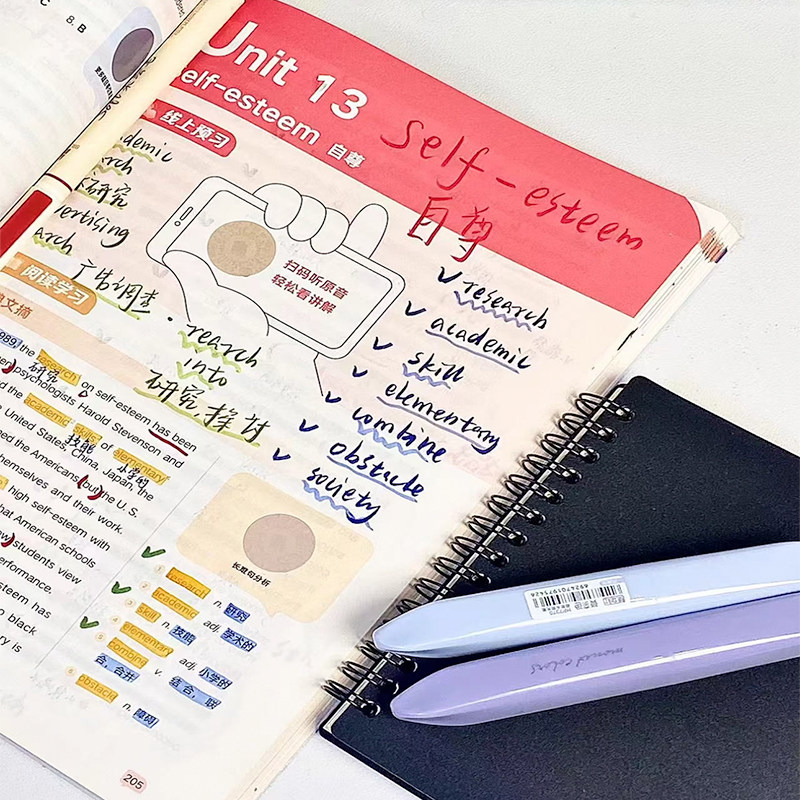 C
8. B
Unit 13
elf-esteem 自尊
self-esteem
自尊
线上预习
demic
arch
研究
ertising
arch
广告调查
扫码听原音
轻松看讲解
reach
into
研究探讨
research
academic
skill
elementary
combine
obstacle
society
阅读学习
文摘
1989, the research on self-esteem has been
研究
psychologists Harold Stevenson and
d the academic skills of elementary
技能
小学的
United States, China, Japan, the
ed the Americans (but the U.S.
hemselves and their work.
high self-esteem with
hat American schools
w) students view
erformance.
steem has
o black
ry is
长难句分析
research n. 研究
academic adj. 学术的
skill n. 技能
elementary adj. 小学的
combine v. 结合，联
合，合并
obstacle n. 障碍
205
6924701975426